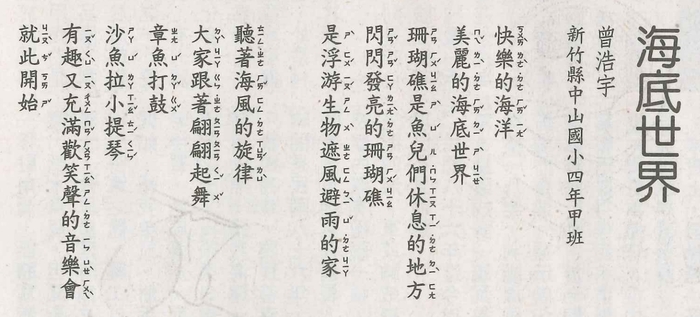 海底世界
曾浩宇
新竹縣中山國小四年甲班
快樂的海洋
美麗的海底世界
珊瑚礁是魚兒們休息的地方
閃閃發亮的珊瑚礁
是浮游生物遮風避雨的家
聽著海風的旋律
大家跟著翩翩起舞
章魚打鼓
沙魚拉小提琴
有趣又充滿歡笑聲的音樂會
就此開始